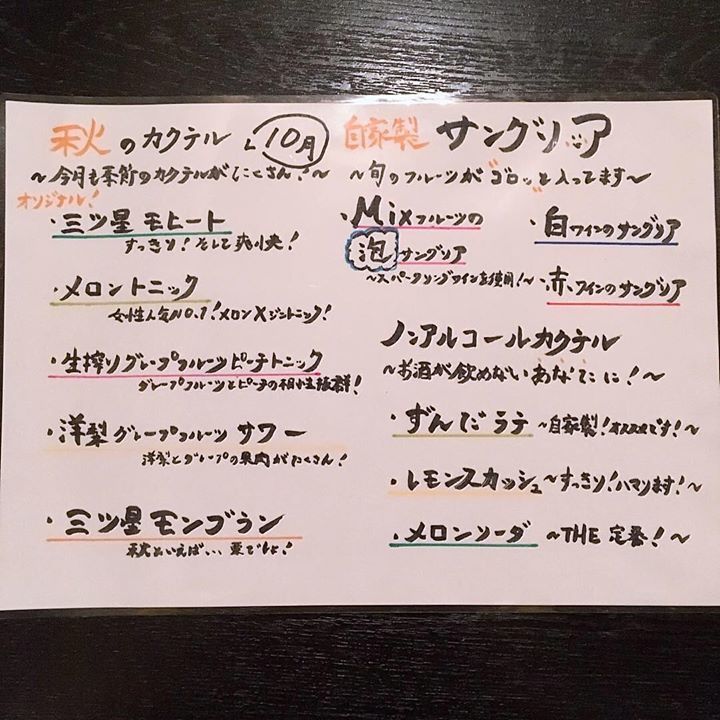 秋のカクテル 10月
～今月も季節のカクテルがたくさん！～
オリジナル！
・三ツ星モヒート
すっきり！そして爽快！
・メロントニック
女性人気NO.1！メロン×ジントニック！
・生搾りグレープフルーツピーチトニック
グレープフルーツとピーチの相性抜群！
・洋梨グレープフルーツサワー
洋梨とグレープの果肉がたくさん！
・三ツ星モンブラン
秋といえば、、、栗でしょ！
自家製 サングリッア
～旬のフルーツが"ゴロッ"と入ってます～
・Mixフルーツの
泡サングリア
～スパークリングワインを使用！～
・白ワインのサングリア
・赤ワインのサングリア
ノンアルコールカクテル
～お酒が飲めないあなたに！～
・ずんだラテ ～自家製！オススメです！～
・レモンスカッシュ～すっきり！ハマります！～
・メロンソーダ ～THE 定番！～